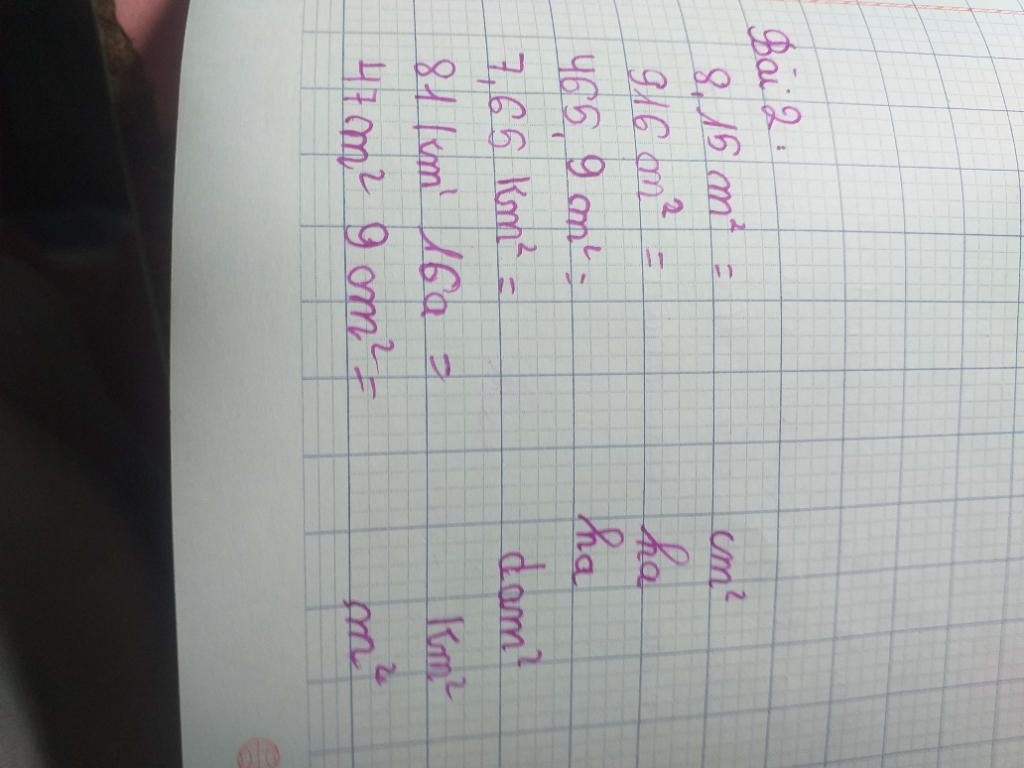 Bài 2:
8,15 m² = cm²
916 m² = ha
465, 9 m² = ha
7,65 km² = dam²
81 km² 16a = km²
47m² 9 cm² = m²